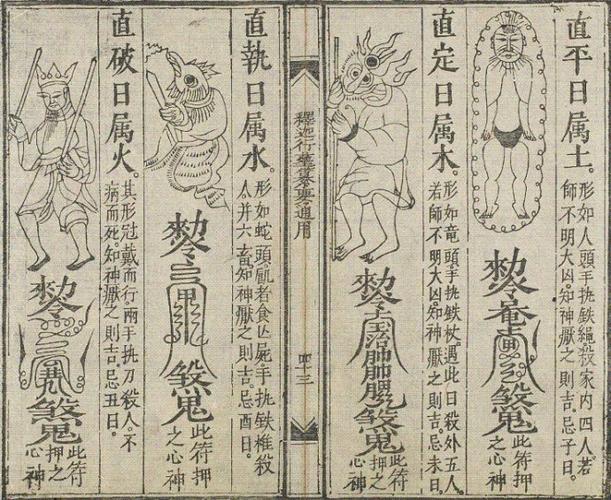 直平日属土。
形如人頭手挑鉄繩殺家内四人若
師不明大凶。知神厭之則吉。忌子日。
勅令奄
煞鬼
此符押
之心神
直定日属木。
形如竜頭手挑鉄杖遇此日殺外五人
若師不明大凶。知神厭之則吉。忌未日。
勅令
煞鬼
此符
押之
心神
釋迦行纂要通用
四十三
直執日属水。
形如蛇頭者食亾屍。手挑鉄椎殺
人并六畜知神厭之則吉。忌酉日。
勅令三
煞鬼
此符押
之心神
直破日属火。
其形冠戴而行兩手挑刀殺人。不
病而死。知神厭之則吉。忌丑日。
勅令三
煞鬼
此符
押之
心神